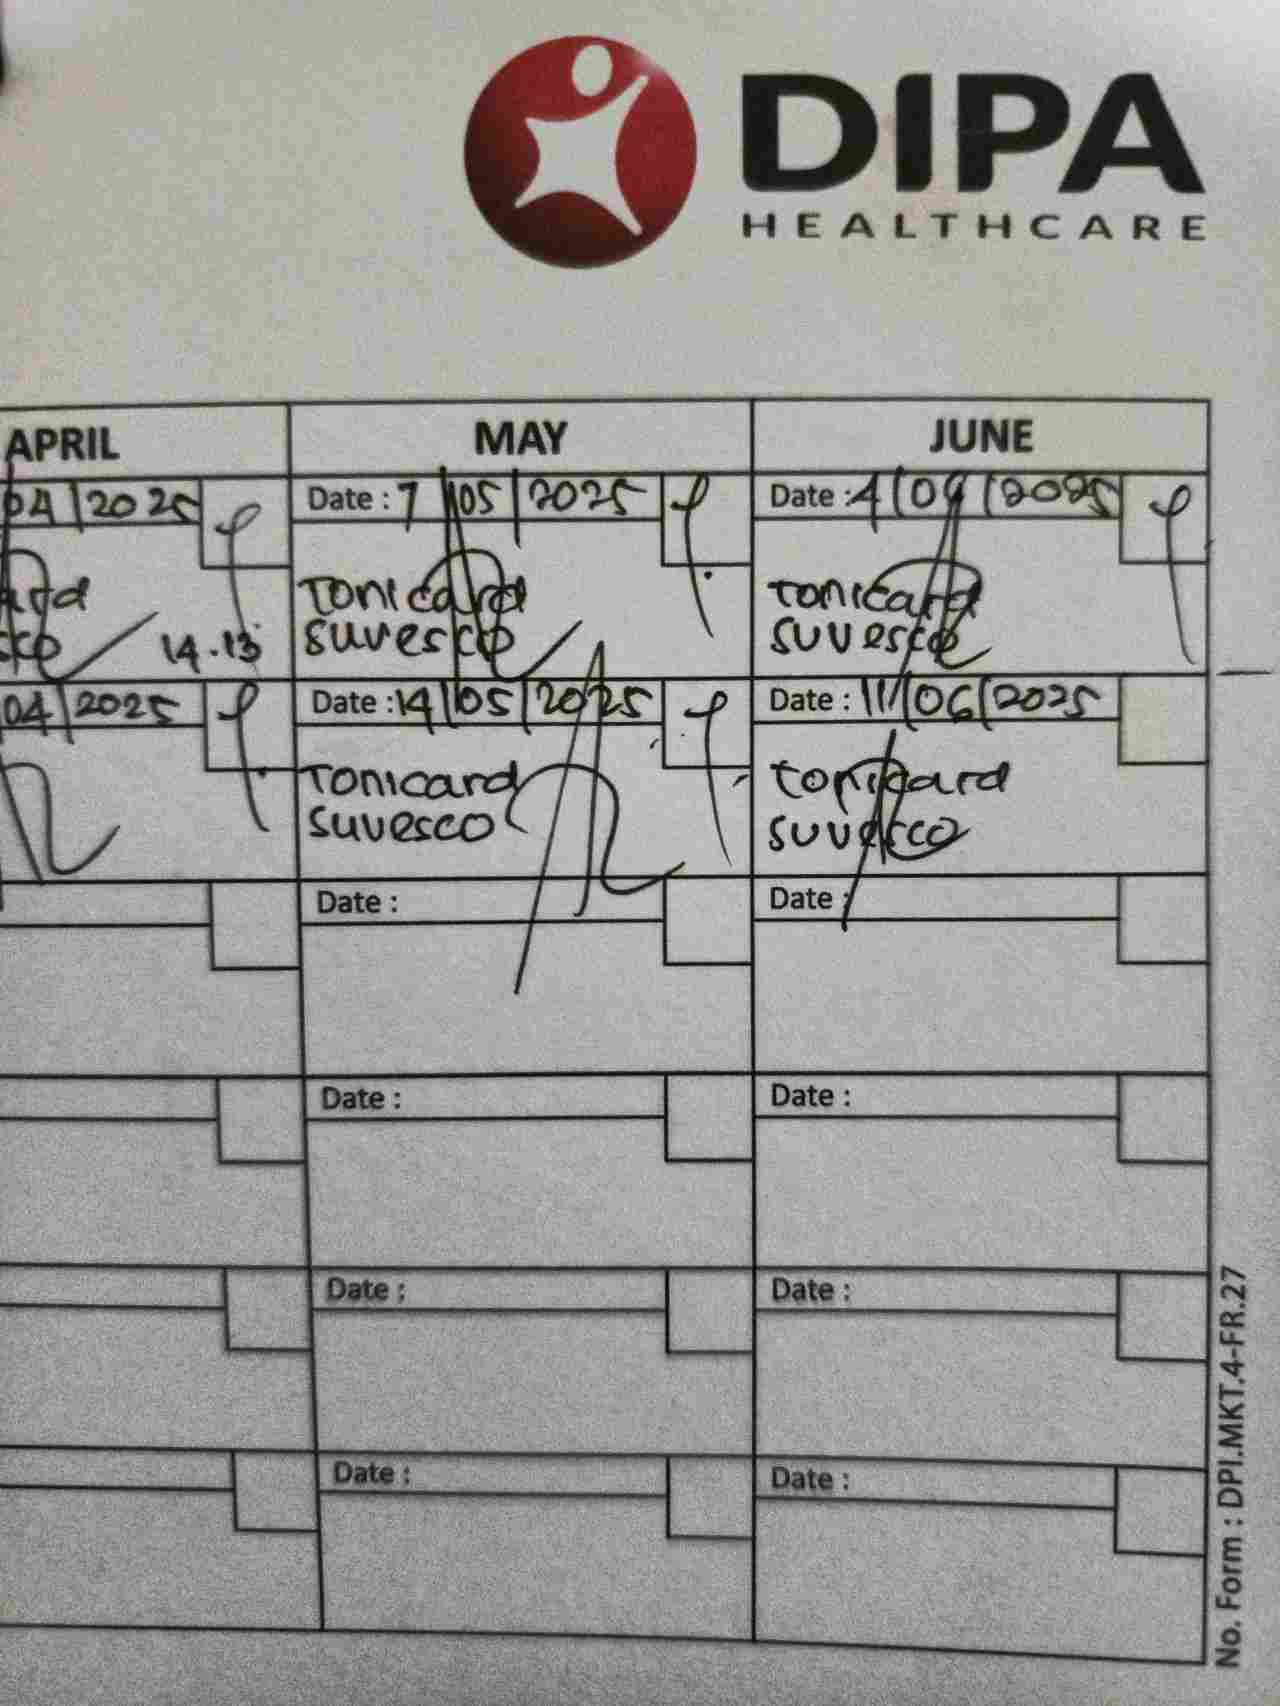 DIPA
HEALTHCARE
APRIL MAY JUNE
04/2025 Date : 7/05/2025 Date : 4/06/2025
Tonicard Tonicard
suvesco suvesco
14.13
04/2025 Date : 14/05/2025 Date : 11/06/2025
Tonicard Tonicard
suvesco suvesco
Date : Date :
Date : Date :
Date : Date :
Date : Date :
No. Form : DPI.MKT.4-FR.27